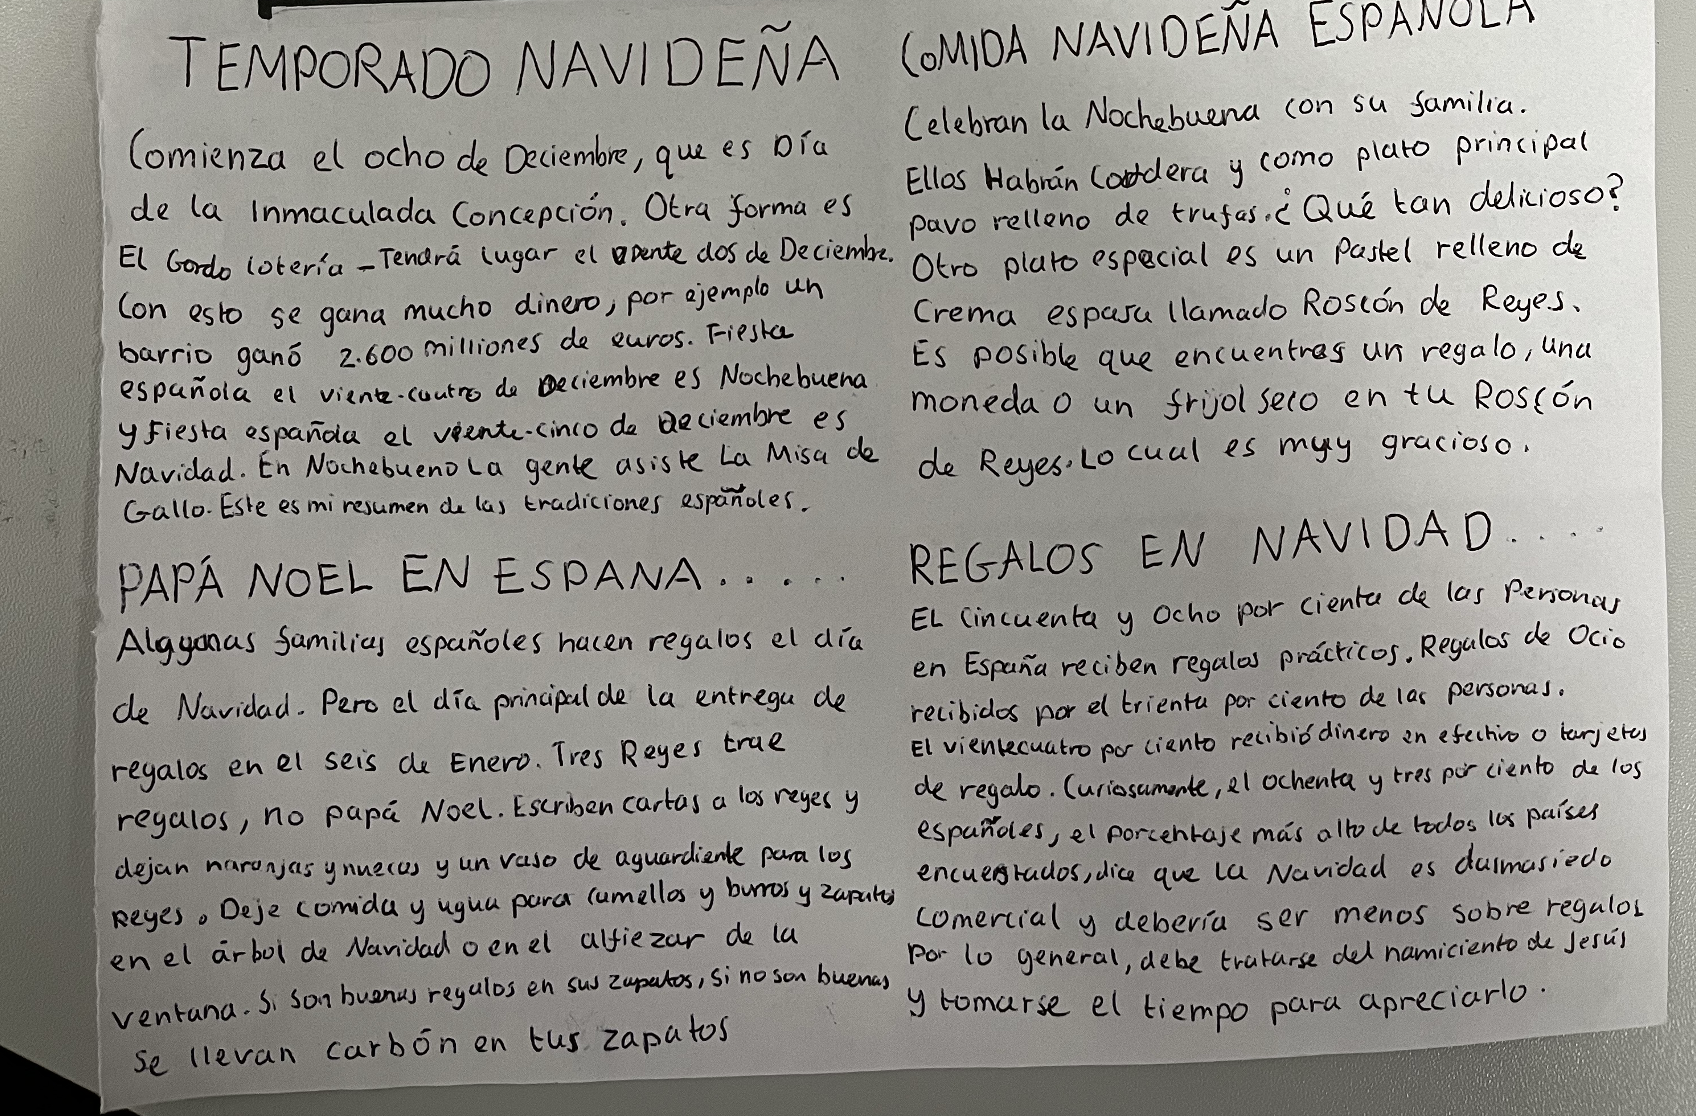 TEMPORADO NAVIDEÑA
Comienza el ocho de Deciembre, que es Día
de la Inmaculada Concepción. Otra forma es
El Gordo lotería - Tendrá lugar el viente dos de Deciembre.
Con esto se gana mucho dinero, por ejemplo un
barrio ganó 2.600 milliones de euros. Fiesta
española el viente-cuatro de Deciembre es Nochebuena
y Fiesta española el viente-cinco de Deciembre es
Navidad. En Nochebueno La gente asiste La Misa de
Gallo. Este es mi resumen de las tradiciones españoles.
PAPÁ NOEL EN ESPANA.....
Alggunas familias españoles hacen regalos el día
de Navidad. Pero el día principal de la entrega de
regalos en el seis de Enero. Tres Reyes trae
regalos, no papá Noel. Escriben cartas a los reyes y
dejan naranjas y nueces y un vaso de aguardiente para los
Reyes. Deje comida y agua para camellos y burros y zapatos
en el árbol de Navidad o en el alfiezar de la
ventana. Si son buenas regalos en sus zapatos, Si no son buenas
se llevan carbón en tus zapatos
COMIDA NAVIDEÑA ESPAÑOLA
Celebran la Nochebuena con su familia.
Ellos Habrán Cordera y como plato principal
pavo relleno de trufas. ¿Qué tan delicioso?
Otro plato especial es un Pastel relleno de
Crema espasa llamado Roscón de Reyes.
Es posible que encuentras un regalo, una
moneda o un frijol seco en tu Roscón
de Reyes. Lo cual es muy gracioso.
REGALOS EN NAVIDAD....
EL Cincuenta y Ocho por cienta de las Personas
en España reciben regalos prácticos. Regalos de Ocio
recibidos por el trienta por ciento de las personas.
El vientecuatro por ciento recibió dinero en efectivo o tarjetas
de regalo. Curiosamente, el ochenta y tres por ciento de los
españoles, el porcentaje más alto de todos los países
encuestados, dice que la Navidad es dasmasiedo
comercial y debería ser menos sobre regalos
Por lo general, debe tratarse del namiciento de Jesús
y tomarse el tiempo para apreciarlo.